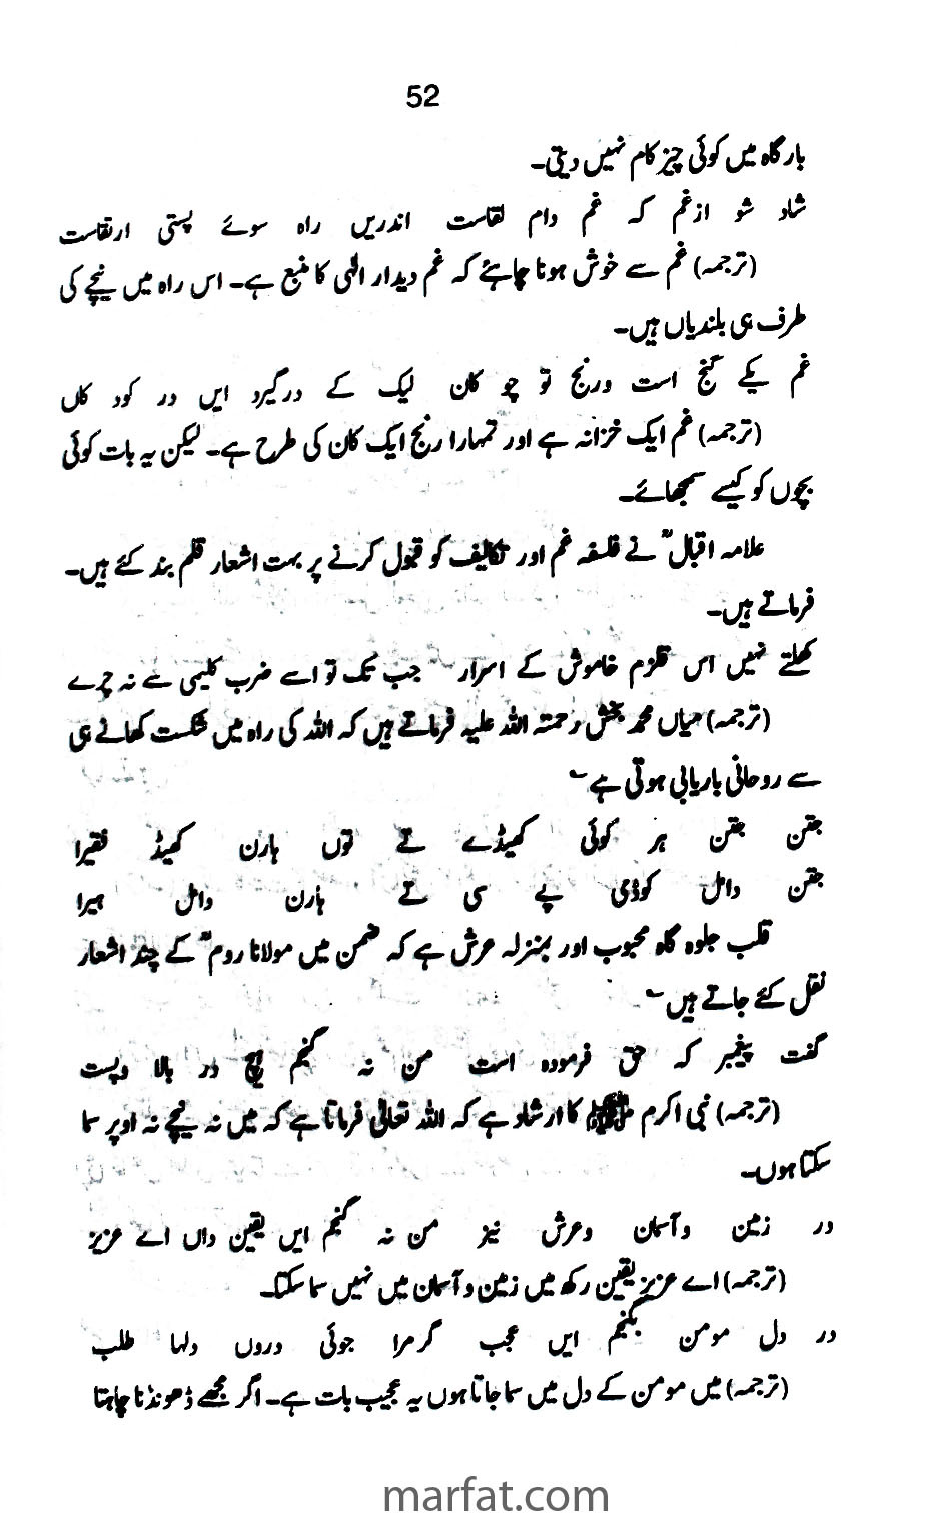 52
بارگاہ میں کوئی چیز کام نہیں دیتی۔
شاد شو ازغم کہ غم دام لقاست اندریں راہ سوئے پستی ارتقاست
(ترجمہ) غم سے خوش ہونا چاہئے کہ غم دیدار الٰہی کا منبع ہے۔ اس راہ میں نیچے کی
طرف ہی بلندیاں ہیں۔
غم یکے گنج است ورنج تو چو کان لیک کے درگیرد ایں در کود کاں
(ترجمہ) غم ایک خزانہ ہے اور تمہارا رنج ایک کان کی طرح ہے۔ لیکن یہ بات کوئی
بچوں کو کیسے سمجھائے۔
علامہ اقبالؒ نے فلسفہ غم اور تکالیف کو قبول کرنے پر بہت اشعار قلم بند کئے ہیں۔
فرماتے ہیں۔
کھلتے نہیں اس قلزم خاموش کے اسرار جب تک تو اسے ضرب کلیمی سے نہ چیرے
(ترجمہ) میاں محمد بخش رحمتہ اللہ علیہ فرماتے ہیں کہ اللہ کی راہ میں شکست کھانے ہی
سے روحانی باریابی ہوتی ہے ؎
جتن جتن ہر کوئی کھیڈے تے توں ہارن کھیڈ فقیرا
جتن داٸل کوڈی پے سی تے ہارن داٸل ہیرا
قلب جلوہ گاہ محبوب اور بمنزلہ عرش ہے کہ ضمن میں مولانا رومؒ کے چند اشعار
نقل کئے جاتے ہیں ؎
گفت پیغمبر کہ حق فرمودہ است من نہ گنجم ہیچ در بالا وپست
(ترجمہ) نبی اکرم ﷺ کا ارشاد ہے کہ اللہ تعالیٰ فرماتا ہے کہ میں نہ نیچے نہ اوپر سما
سکتا ہوں۔
در زمین وآسمان وعرش نیز من نہ گنجم ایں یقین داں اے عزیز
(ترجمہ) اے عزیز یقین رکھ میں زمین و آسمان میں نہیں سما سکتا۔
در دل مومن بگنجم ایں عجب گر مرا جوئی دروں دلہا طلب
(ترجمہ) میں مومن کے دل میں سما جاتا ہوں یہ عجیب بات ہے۔ اگر مجھے ڈھونڈنا چاہتا
marfat.com